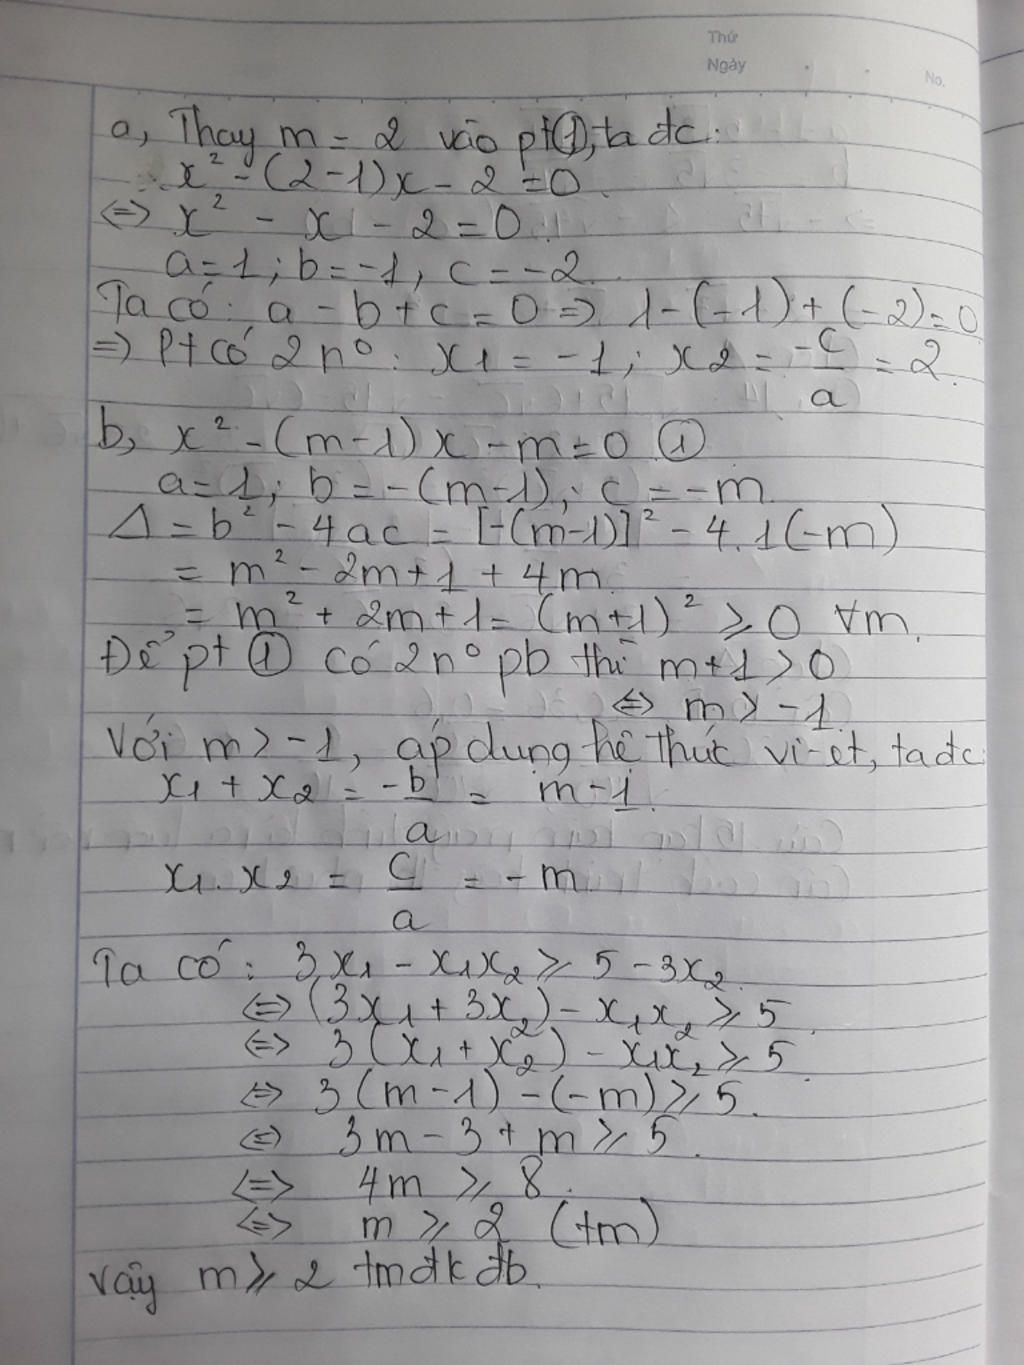 Thứ
Ngày
No.
a, Thay m = 2 vào pt①, ta đc:
x² - (2-1)x - 2 = 0
<=> x² - x - 2 = 0.
a = 1 ; b = -1, c = -2.
Ta có: a - b + c = 0 => 1-(-1)+(-2)=0
=> Pt có 2 n⁰ : x1 = -1 ; x2 = -c/a = 2.
b, x² - (m-1) x - m = 0 ①
a = 1; b = -(m-1); c = -m
Δ = b² - 4ac = [-(m-1)]² - 4.1(-m)
= m² - 2m + 1 + 4m.
= m² + 2m + 1 = (m+1)² ⩾ 0 ∀m.
Để pt ① có 2 n⁰ pb thì m+1 > 0
<=> m > -1
Với m > -1, áp dụng hệ thức vi-ét, ta đc:
x1 + x2 = -b/a = m - 1.
x1 . x2 = c/a = -m
Ta có : 3x1 - x1x2 ⩾ 5 - 3x2.
<=> (3x1 + 3x2) - x1x2 ⩾ 5.
<=> 3(x1 + x2) - x1x2 ⩾ 5.
<=> 3(m - 1) - (-m) ⩾ 5.
<=> 3m - 3 + m ⩾ 5.
<=> 4m ⩾ 8.
<=> m ⩾ 2 (tm)
Vậy m ⩾ 2 tmđk đb.